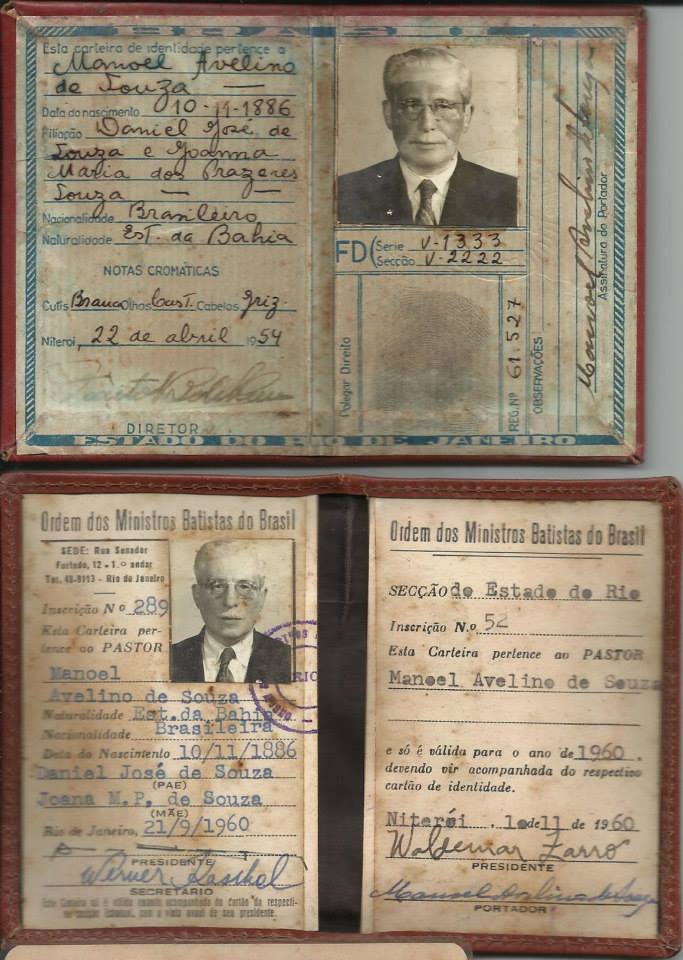 BRASIL
Esta carteira de identidade pertence a
Manoel Avelino
de Souza —
Data do nascimento 10-11-1886
Filiação Daniel José de
Souza e Joanna
Maria dos Prazeres
Souza — —
Nacionalidade Brasileiro
Naturalidade Est. da Bahia
NOTAS CROMÁTICAS
Cutis Branca Olhos Cast. Cabelos Griz.
Niteroi, 22 de abril 1954
DIRETOR
FD (Serie V-1333
Secção V-2222
Polegar Direito
REG. Nº 61.527
OBSERVAÇÕES
Manoel Avelino de Souza
Assinatura do Portador
ESTADO DO RIO DE JANEIRO
Ordem dos Ministros Batistas do Brasil
SÉDE: Rua Senador
Furtado, 12 - 1.º andar
Tel. 48-8113 - Rio de Janeiro
Inscrição Nº 289
Esta Carteira per-
tence ao PASTOR
Manoel
Avelino de Souza
Naturalidade Est. da Bahia
Nacionalidade Brasileira
Data do Nascimento 10/11/1886
Daniel José de Souza
(PAE)
Joana M.P. de Souza
(MÃE)
Rio de Janeiro, 21/9/1960
PRESIDENTE
Werner Kaschel
SECRETARIO
Esta Carteira só é válida quando acompanhada do cartão da respecti-
va secção Estadual, com o visto anual do seu presidente.
Ordem dos Ministros Batistas do Brasil
SECÇÃO do Estado do Rio
Inscrição N.o 52
Esta Carteira pertence ao PASTOR
Manoel Avelino de Souza
e só é válida para o ano de 1960.
devendo vir acompanhada do respectivo
cartão de identidade.
Niterói, 1o de 11 de 1960
Waldemar Zarro
PRESIDENTE
Manoel Avelino de Souza
PORTADOR